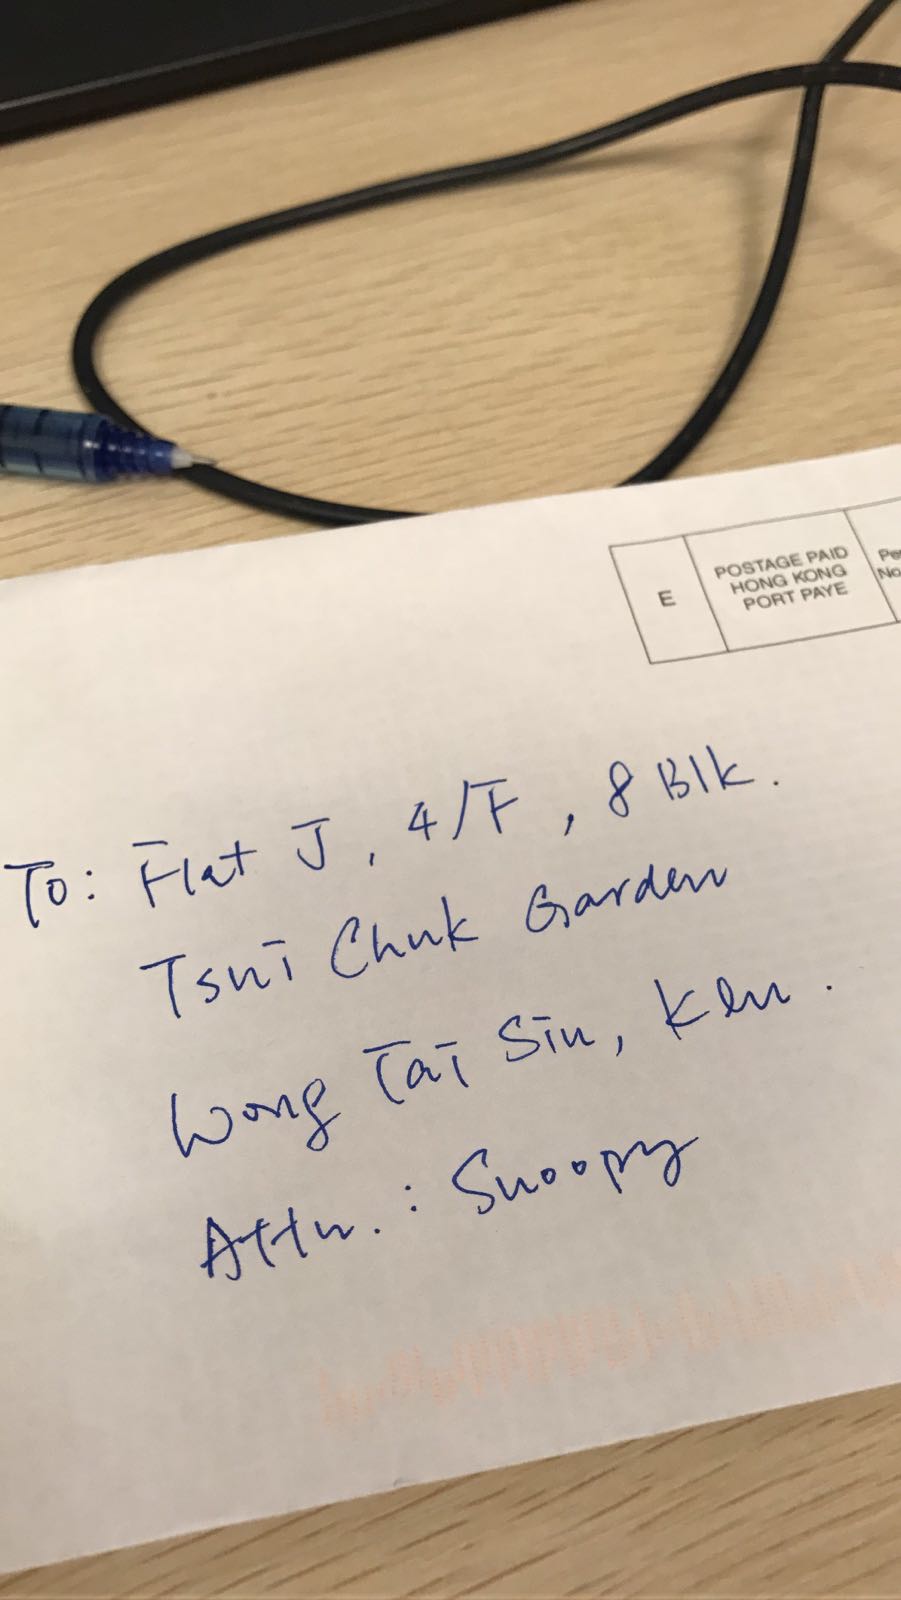 E
POSTAGE PAID
HONG KONG
PORT PAYE
Pe
No
To: Flat J, 4/F, 8 Blk.
Tsui Chuk Garden
Wong Tai Sin, Kln.
Attn.: Snoopy